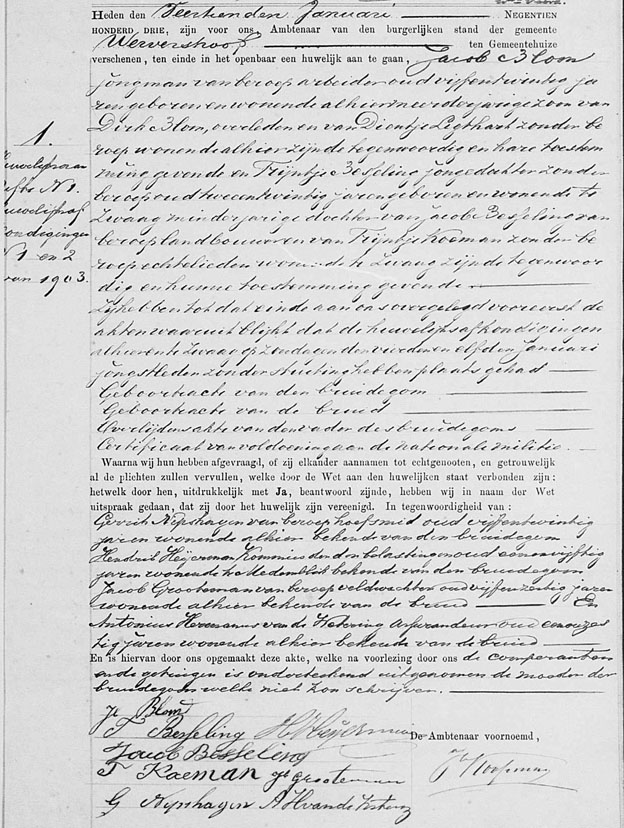 Heden den Veertienden Januari NEGENTIEN
HONDERD DRIE, zijn voor ons Ambtenaar van den burgerlijken stand der gemeente
Wervershoof ten Gemeentehuize
verschenen, ten einde in het openbaar een huwelijk aan te gaan, Jacob Blom
jongman van beroep arbeider oud vijfentwintig ja
ren geboren en wonende alhier meerderjarige zoon van
Dirk Blom, overleden en van Dientje Ligthart zonder be
roep wonende alhier zijnde tegenwoordig en hare toestem
ming gevende en Trijntje Besseling jongedochter zonder
beroep oud tweeentwintig jaren geboren en wonende te
Zwaag minderjarige dochter van Jacob Besseling van
beroep landbouwer en van Trijntje Koeman zonder be
roep echtelieden wonende te Zwaag zijnde tegenwoor
dig en hunne toestemming gevende
Zij hebben tot dat einde aan ons overgelegd vooreerst de
akten waaruit blijkt dat de huwelijksafkondigingen
alhier en te Zwaag op Zondagen den vierden en elfden Januari
jongstleden zonder stuiting hebben plaats gehad
Geboorteacte van den bruidegom
Geboorteacte van de bruid
Overlijdensakte van den vader des bruidegoms
Certificaat van voldoening aan de nationale militie.
1.
N 1.
N 1 en 2
van 1903.
Waarna wij hun hebben afgevraagd, of zij elkander aannamen tot echtgenooten, en getrouwelijk
al de plichten zullen vervullen, welke door de Wet aan den huwelijken staat verbonden zijn:
hetwelk door hen, uitdrukkelijk met Ja, beantwoord zijnde, hebben wij in naam der Wet
uitspraak gedaan, dat zij door het huwelijk zijn vereenigd. In tegenwoordigheid van:
Gerrit Nipshagen van beroep hoefsmid oud vijfentwintig
jaren wonende alhier bekende van den bruidegom
Hendrik Heijerman Kommies der belastingen oud eenenvijftig
jaren wonende te Medemblik bekende van den bruidegom
Jacob Grooteman van beroep veldwachter oud vijfenveertig jaren
wonende alhier bekende van de bruid En
Antonius Hermanus van de Wetering oud
tig jaren wonende alhier bekende van de bruid
En is hiervan door ons opgemaakt deze akte, welke na voorlezing door ons de comparanten
en de getuigen is onderteekend uitgenomen de moeder der
bruidegom welke niet kon schrijven.
Jb Blom
T Besseling H Heijerman De Ambtenaar voornoemd,
Jacob Besseling
T Koeman Jb Grooteman J Koopman
G Nipshagen A H van de Wetering